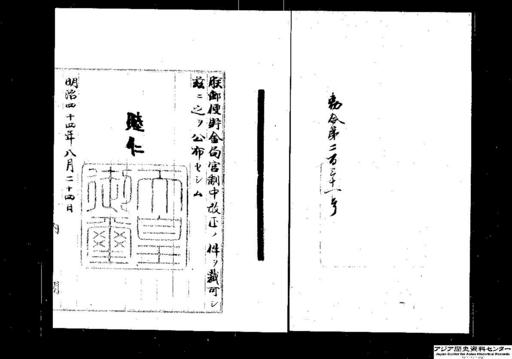 勅令第二百三十一号
朕郵便貯金局官制中改正ノ件ヲ裁可シ
茲ニ之ヲ公布セシム
睦仁
天皇御璽
明治四十四年八月二十四日
アジア歴史資料センター
Japan Center for Asian Historical Records